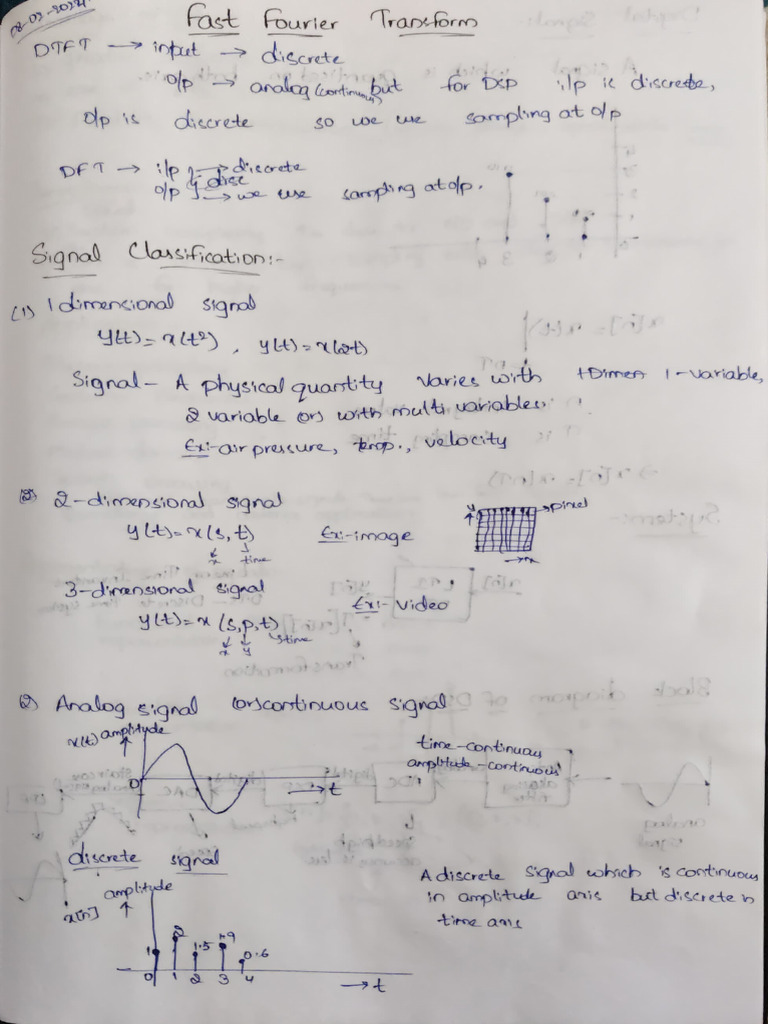 Fast Fourier Transform
DTFT → input → discrete
O/p → analog (continuous) but for DSP i/p is discrete,
O/p is discrete so we use sampling at O/p
DFT → i/p → discrete
O/p → disc
→ we use sampling at O/p.
Signal Classification:-
(1) 1 dimensional signal
y(t) = x(t²) , y(t) = x(2t)
Signal - A physical quantity varies with 1-variable,
2 variable (or) with multi variables.
Ex:- air pressure, temp., velocity
2-dimensional signal
y(t) = x(s, t) Ex:- image
x time
y → pixel
→ x
3-dimensional signal
y(t) = x (s, p, t) Ex:- video
x y time
(2) Analog signal (or) continuous signal
x(t) amplitude
0 → t
time-continuous
amplitude-continuous
discrete signal
amplitude
x[n]
1 2 1.5 0.6
0 1 2 3 4
→ t
A discrete signal which is continuous
in amplitude axis but discrete in
time axis